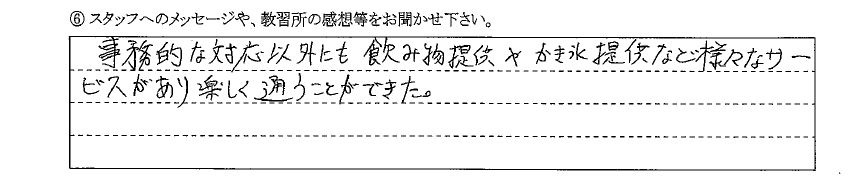 ⑥ スタッフへのメッセージや、教習所の感想等をお聞かせ下さい。
事務的な対応以外にも飲み物提供やかき氷提供など様々なサー
ビスがあり楽しく通うことができた。